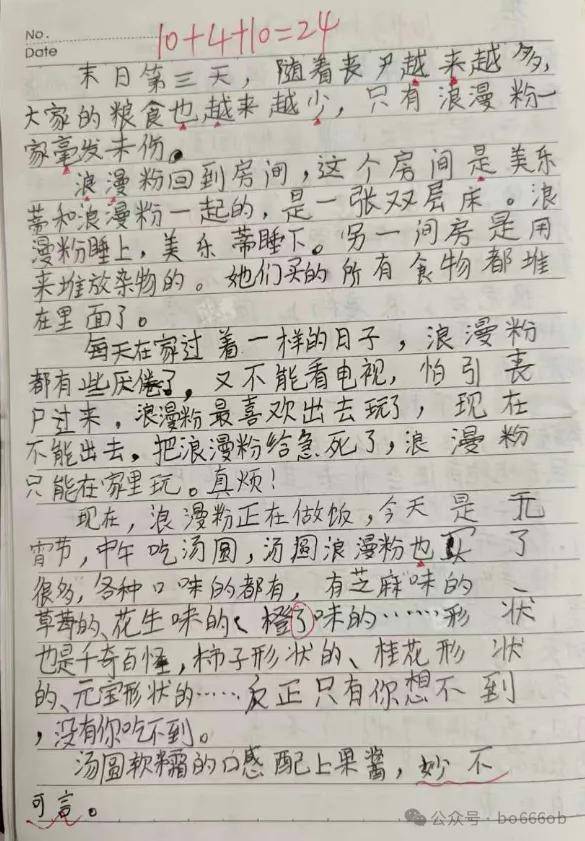 No.
Date
10+4+10=24
末日第三天，随着丧尸越来越多，
大家的粮食也越来越少，只有浪漫粉一
家毫发未伤。
浪漫粉回到房间，这个房间是美乐
蒂和浪漫粉一起的，是一张双层床。浪
漫粉睡上，美乐蒂睡下。另一间房是用
来堆放杂物的。她们买的所有食物都堆
在里面了。
每天在家过着一样的日子，浪漫粉
都有些厌倦了，又不能看电视，怕引丧
尸过来。浪漫粉最喜欢出去玩了，现在
不能出去。把浪漫粉给急死了，浪漫粉
只能在家里玩。真烦！
现在，浪漫粉正在做饭，今天是元
宵节，中午吃汤圆，汤圆浪漫粉也买了
很多，各种口味的都有，有芝麻味的、
草莓的、花生味的、橙了味的……形状
也是千奇百怪，柿子形状的、桂花形状
的、元宝形状的……反正只有你想不到
，没有你吃不到。
汤圆软糯的口感配上果酱，妙不
可言。
公众号·bo666ob